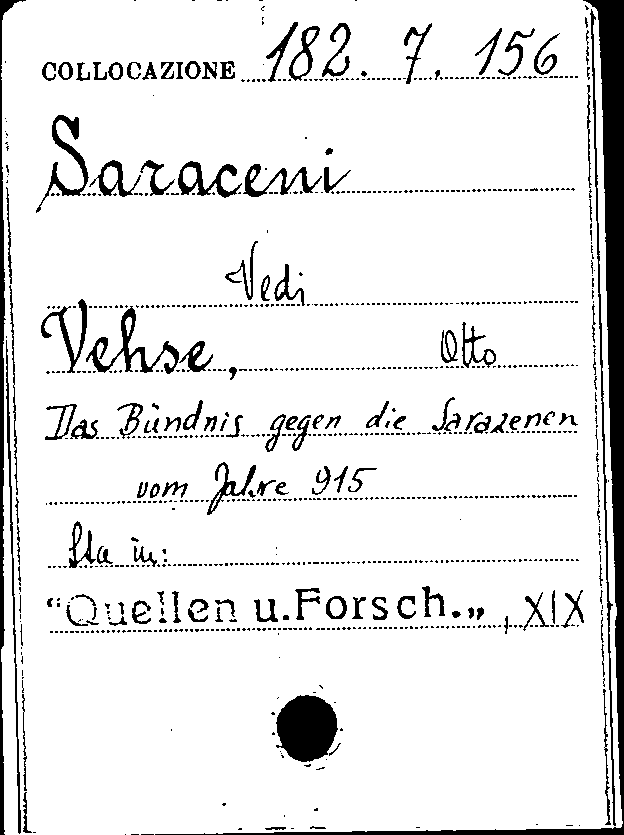 COLLOCAZIONE 182. 7. 156
Saraceni
Vedi
Vehse, Otto
Das Bündnis gegen die Sarazenen
vom Jahre 915
Sta in:
"Quellen u.Forsch.„, XIX